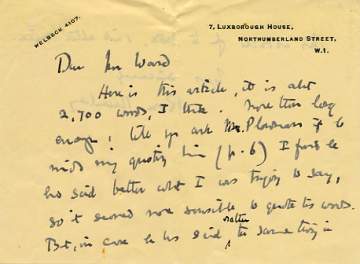 WELBECK 4107.
7, LUXBOROUGH HOUSE,
NORTHUMBERLAND STREET,
W.1.
Dear Mr Ward
Here is this article, it is abt
2,700 words, I think.
enough; will you ask Mr. Plowman if he
minds my quoting him (p. 6) I find he
has said better what I was trying to say,
so it seemed more sensible to quote his words.
But, in case he has said the same thing in
rather